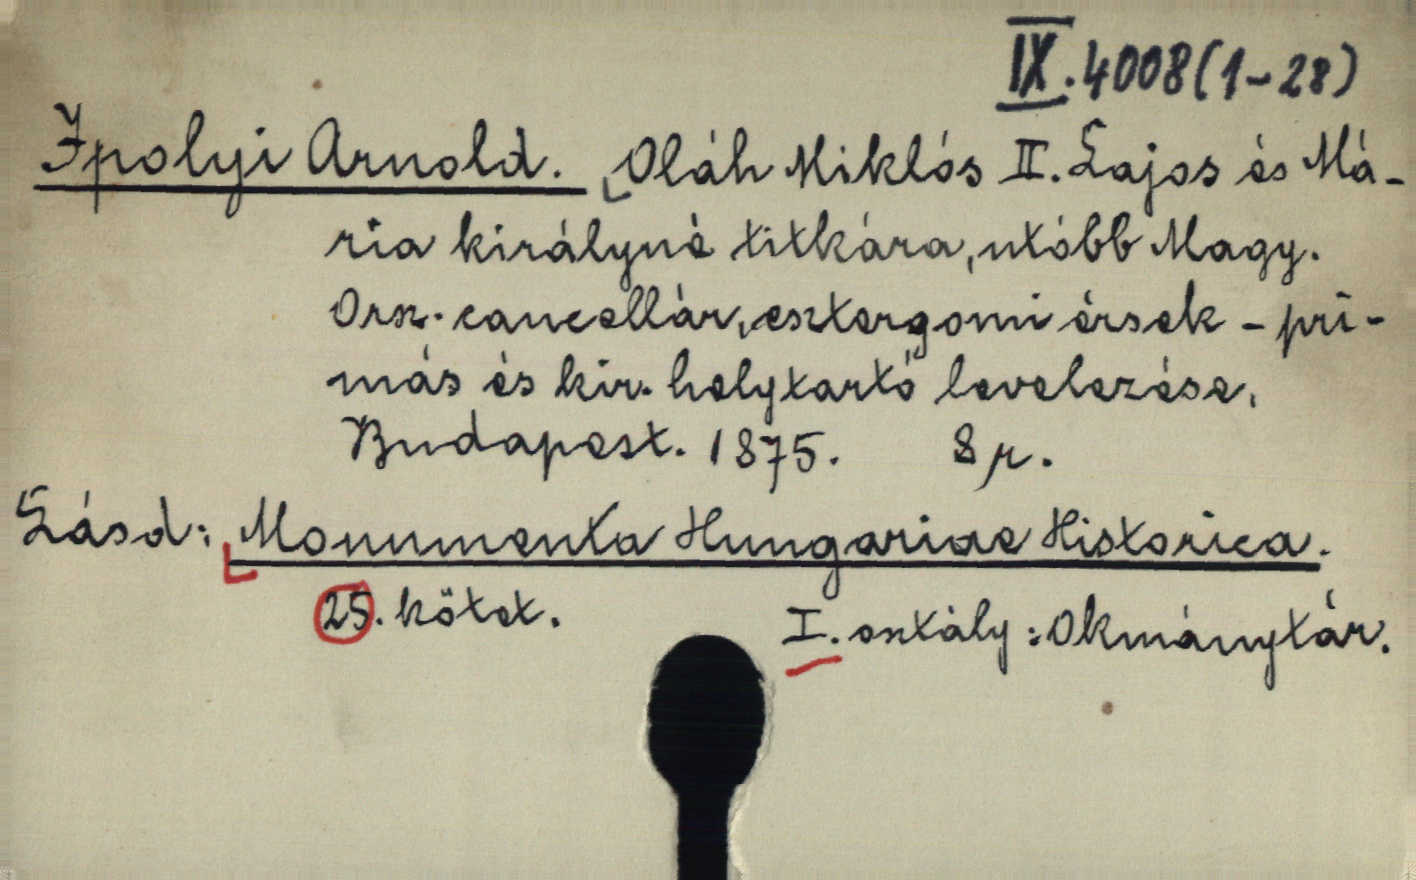 IX. 4008 (1-28)
Ipolyi Arnold. Oláh Miklós II. Lajos és Má-
ria királyné titkára, utóbb Magy.
Orsz. cancellár, esztergomi érsek - prí-
más és kir. helytartó levelezése.
Budapest. 1875. 8 r.
Lásd: Monumenta Hungariae Historica.
25. kötet. I. osztály: Okmánytár.